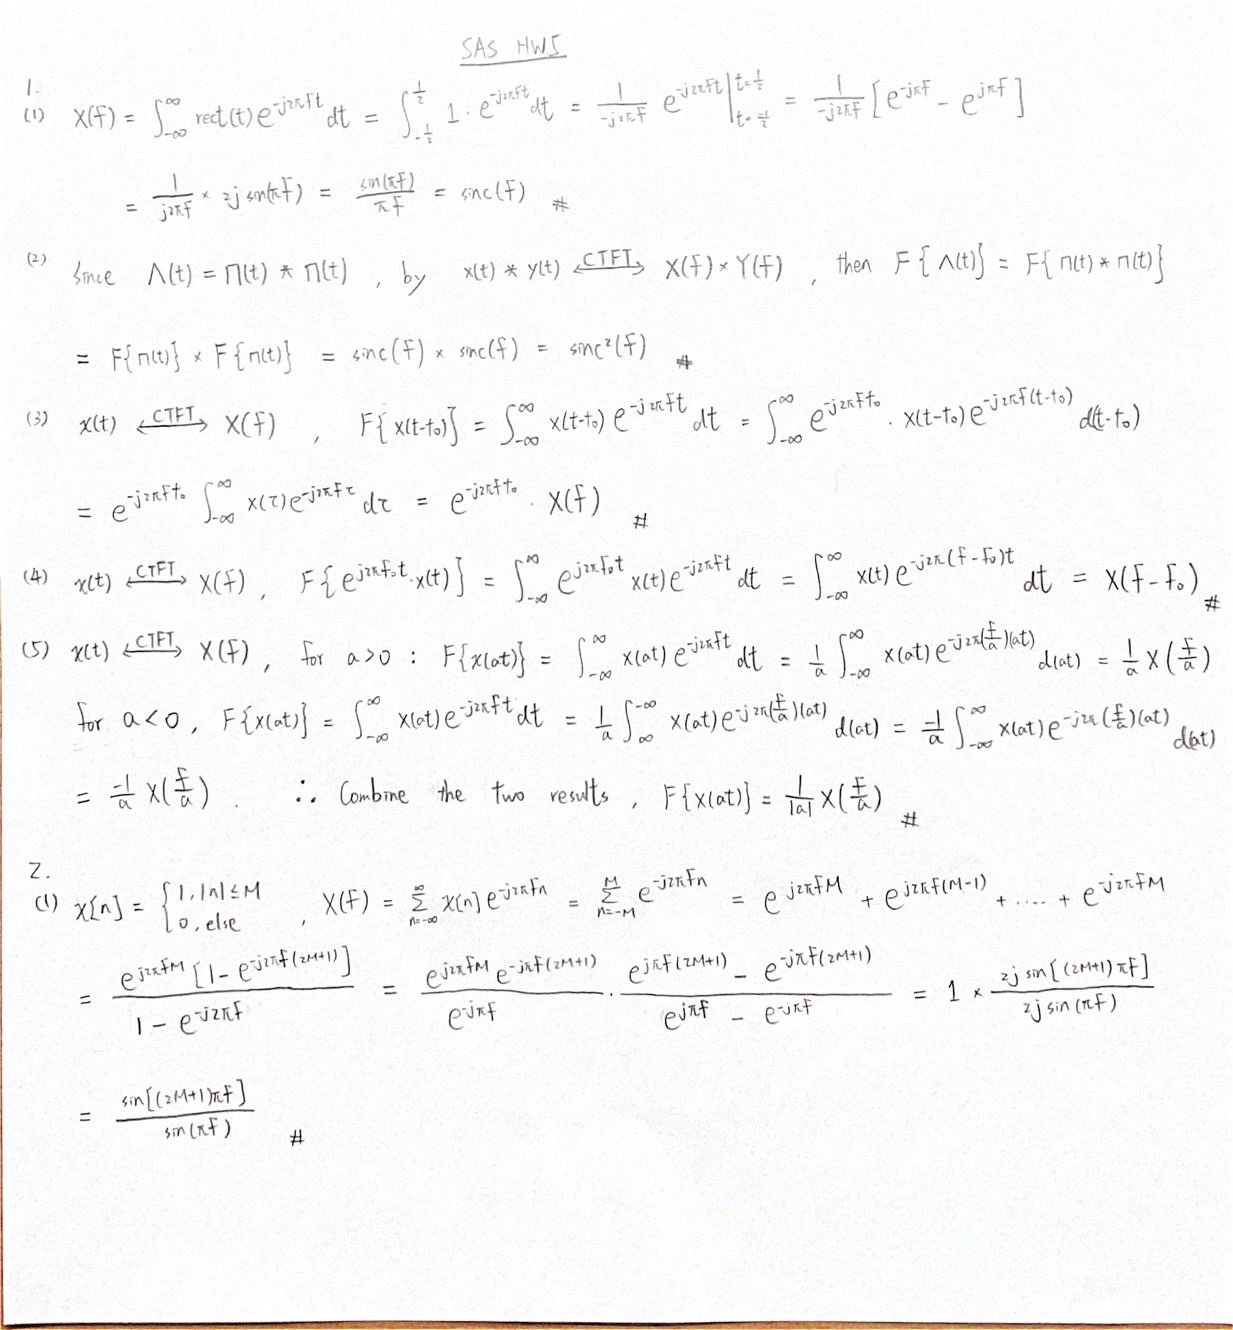 SAS HW5
1.
(1) X(f) = ∫_{-∞}^{∞} rect(t) e^{-j2πft} dt = ∫_{-1/2}^{1/2} 1 · e^{-j2πft} dt = 1/(-j2πf) e^{-j2πft} |_{t=-1/2}^{t=1/2} = 1/(-j2πf) [e^{-jπf} - e^{jπf}]
= 1/(j2πf) × 2j sin(πf) = sin(πf)/(πf) = sinc(f) #
(2) Since Λ(t) = Π(t) * Π(t) , by x(t) * y(t) ⟷^{CTFT} X(f) × Y(f) , then F{Λ(t)} = F{Π(t) * Π(t)}
= F{Π(t)} × F{Π(t)} = sinc(f) × sinc(f) = sinc²(f) #
(3) x(t) ⟷^{CTFT} X(f) , F{x(t-t₀)} = ∫_{-∞}^{∞} x(t-t₀) e^{-j2πft} dt = ∫_{-∞}^{∞} e^{-j2πft₀} · x(t-t₀) e^{-j2πf(t-t₀)} d(t-t₀)
= e^{-j2πft₀} ∫_{-∞}^{∞} x(τ) e^{-j2πfτ} dτ = e^{-j2πft₀} · X(f) #
(4) x(t) ⟷^{CTFT} X(f) , F{e^{j2πf₀t} · x(t)} = ∫_{-∞}^{∞} e^{j2πf₀t} x(t) e^{-j2πft} dt = ∫_{-∞}^{∞} x(t) e^{-j2π(f-f₀)t} dt = X(f-f₀) #
(5) x(t) ⟷^{CTFT} X(f) , for a>0 : F{x(at)} = ∫_{-∞}^{∞} x(at) e^{-j2πft} dt = 1/a ∫_{-∞}^{∞} x(at) e^{-j2π(f/a)(at)} d(at) = 1/a X(f/a)
for a<0 , F{x(at)} = ∫_{-∞}^{∞} x(at) e^{-j2πft} dt = 1/a ∫_{∞}^{-∞} x(at) e^{-j2π(f/a)(at)} d(at) = -1/a ∫_{-∞}^{∞} x(at) e^{-j2π(f/a)(at)} d(at)
= -1/a X(f/a) . ∴ Combine the two results , F{x(at)} = 1/|a| X(f/a) #
2.
(1) x[n] = { 1, |n| ≤ M ; 0, else , X(f) = Σ_{n=-∞}^{∞} x[n] e^{-j2πfn} = Σ_{n=-M}^{M} e^{-j2πfn} = e^{j2πfM} + e^{j2πf(M-1)} + .... + e^{-j2πfM}
= e^{j2πfM} [1 - e^{-j2πf(2M+1)}] / (1 - e^{-j2πf}) = e^{j2πfM} e^{-jπf(2M+1)} / e^{-jπf} · (e^{jπf(2M+1)} - e^{-jπf(2M+1)}) / (e^{jπf} - e^{-jπf}) = 1 × 2j sin[(2M+1)πf] / 2j sin(πf)
= sin[(2M+1)πf] / sin(πf) #